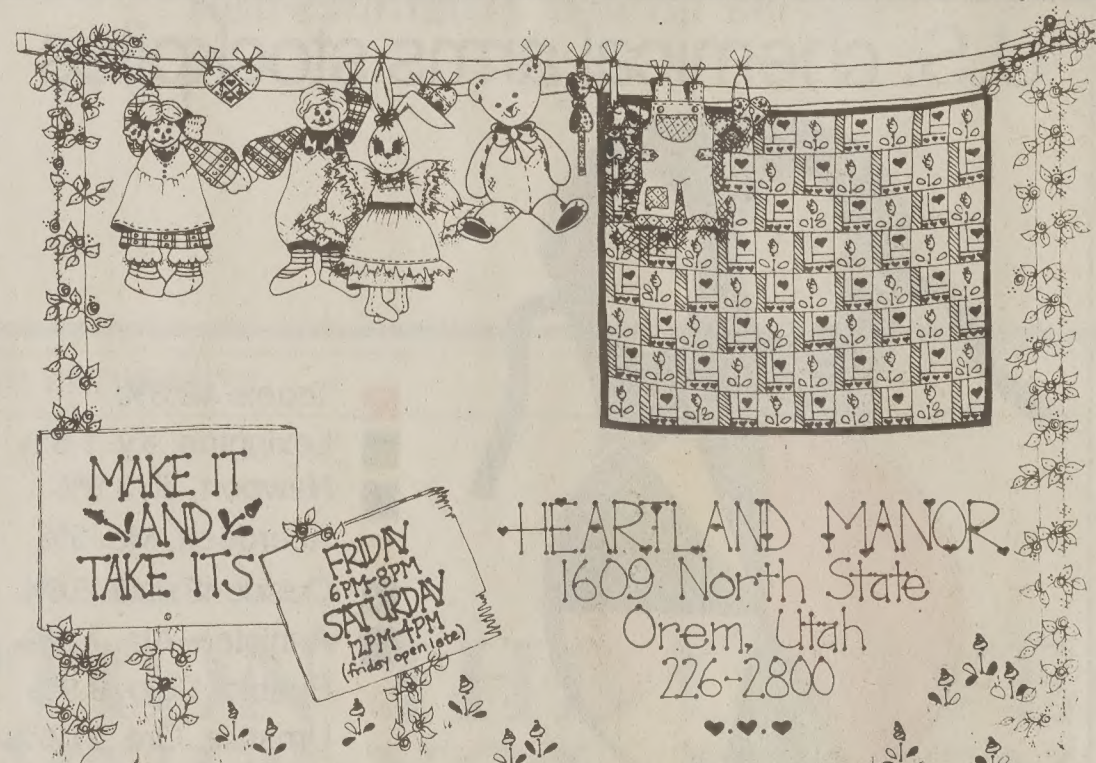 MAKE IT
AND
TAKE ITS
FRIDAY
6PM-8PM
SATURDAY
12PM-4PM
(friday open late)
HEARTLAND MANOR
1609 North State
Orem, Utah
226-2800